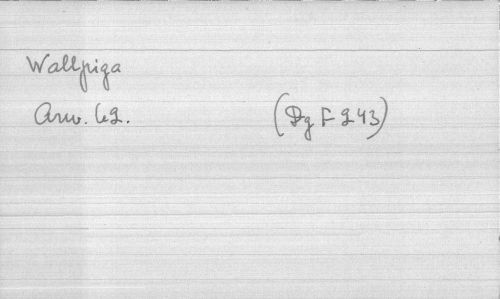 Wallpiga
Arw. 62. (Dg F 243)